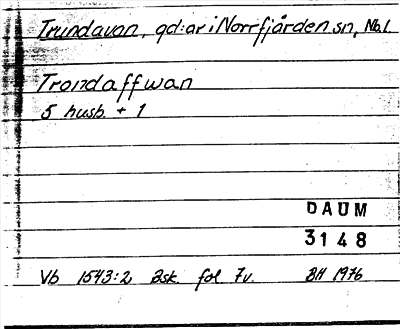 Trundavan, gd:ar i Norrfjärden sn, Nb.l.
Trondaffwan
5 husb. + 1
DAUM
3148
Vb 1543:2 Bsk. fol 7v. BH 1976